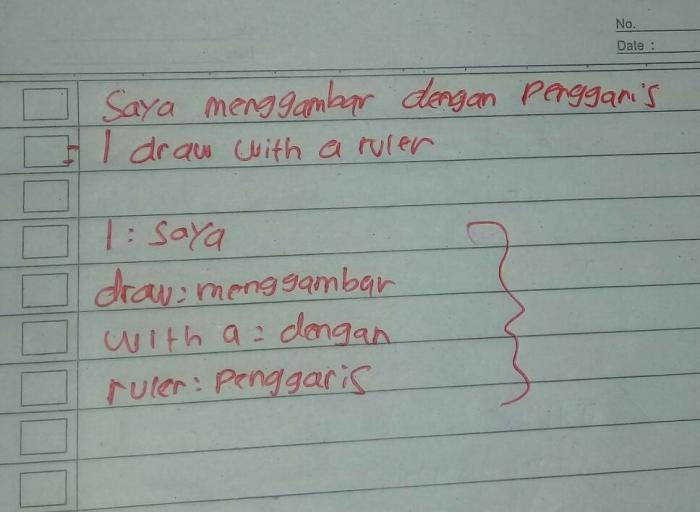 No.
Date :
Saya menggambar dengan Penggaris
= I draw with a ruler
I : saya
draw : menggambar
with a = dengan
ruler : Penggaris